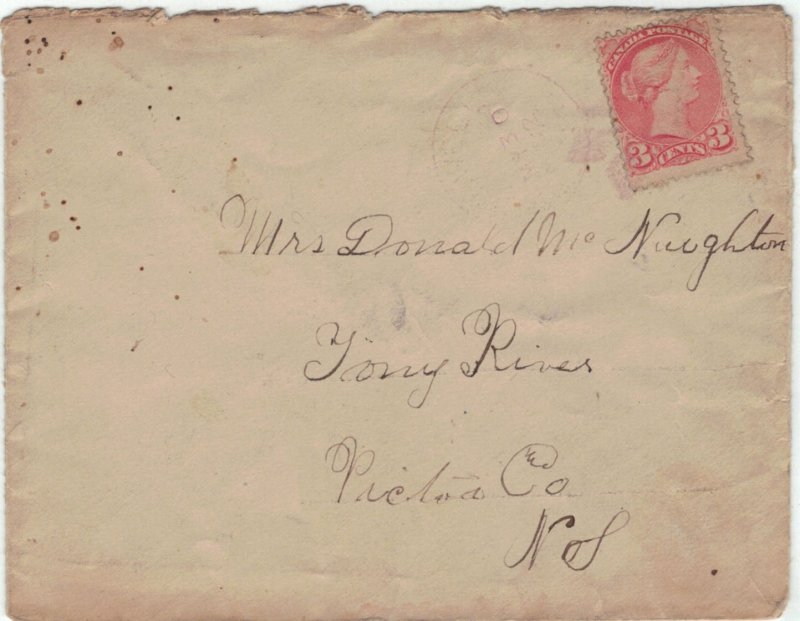 CANADA POSTAGE
3 CENTS 3
Mrs Donald Mc Nughton
Tony River
Pictou Co
N S